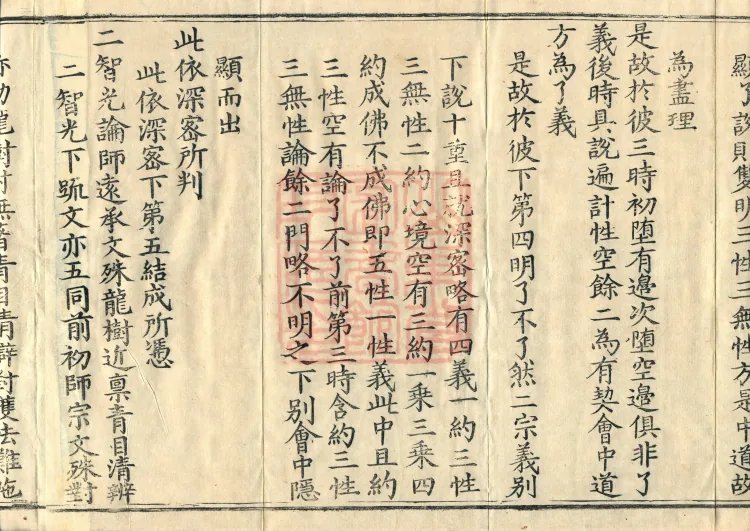 顯了說則雙明三性三無性方是中道故
為盡理
是故於彼三時初墮有邊次墮空邊俱非了
義後時具說遍計性空餘二為有契會中道
方為了義
是故於彼下第四明了不了然二宗義別
下說十重且就深密略有四義一約三性
三無性二約心境空有三約一乘三乘四
約成佛不成佛即五性一性義此中且約
三性空有論了不了前第三時含約三性
三無性論餘二門略不明之下別會中隱
顯而出
此依深密所判
此依深密下第五結成所憑
二智光論師遠承文殊龍樹近稟青目清辨
二智光下䟽文亦五同前初師宗文殊對